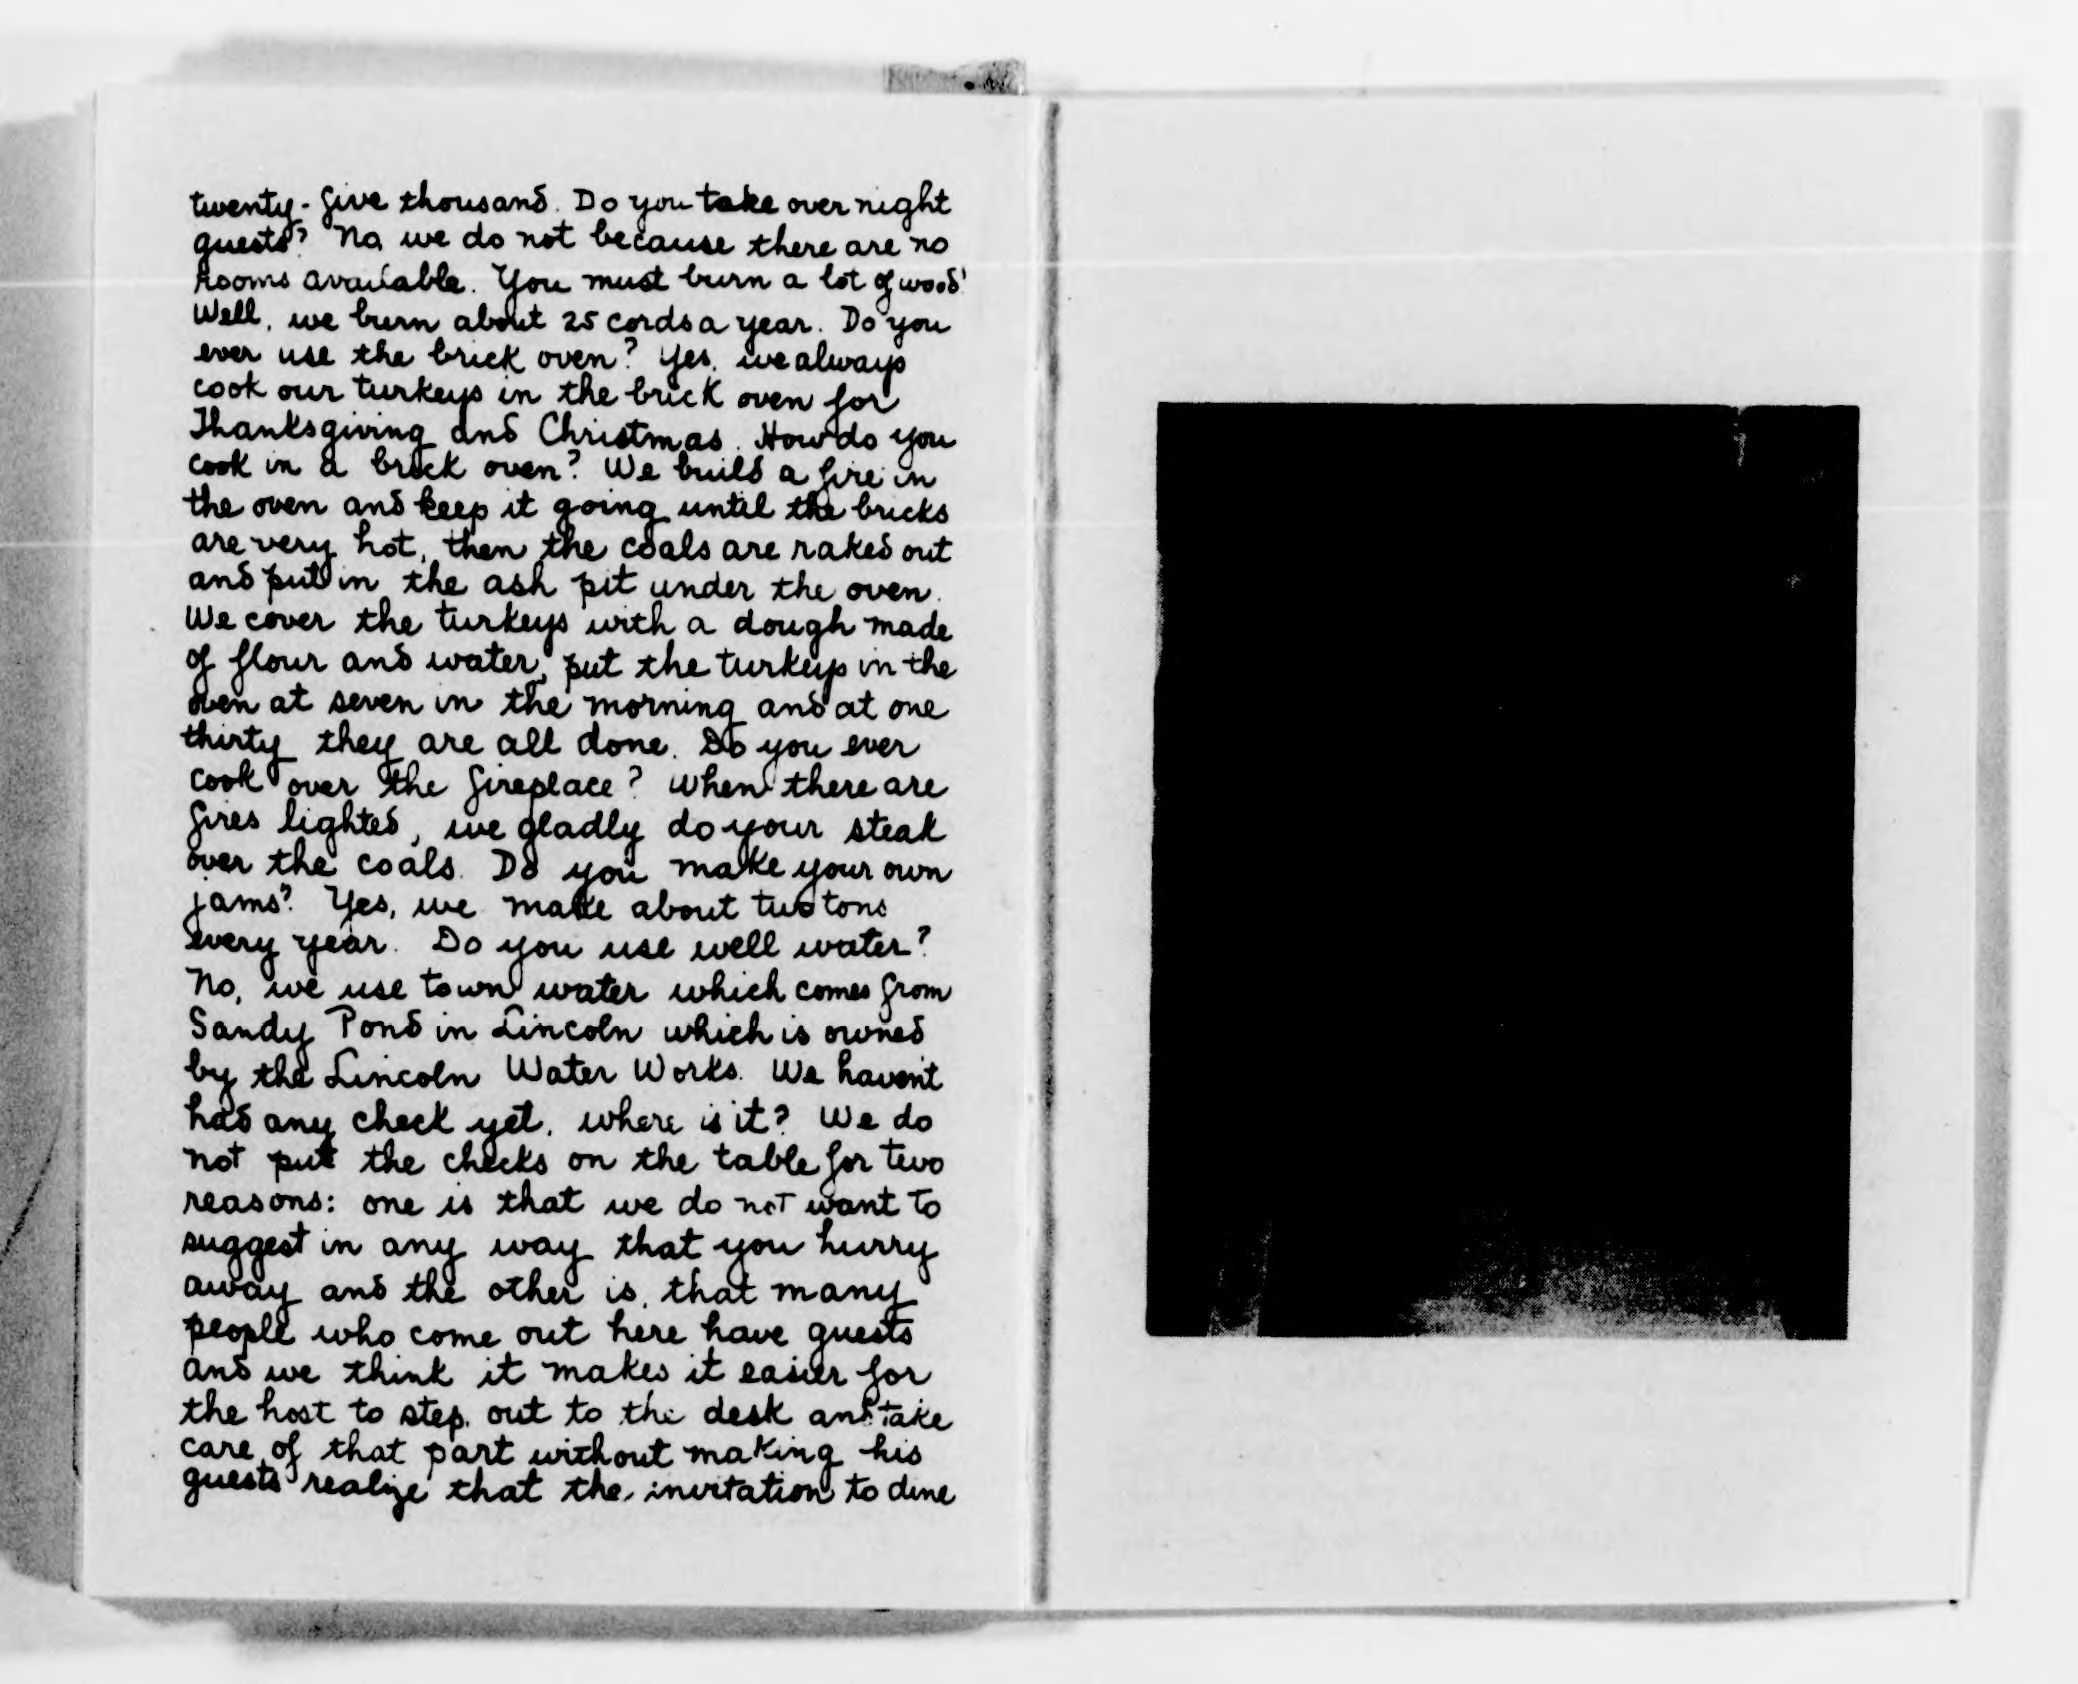 twenty-five thousand. Do you take over night
guests? No we do not because there are no
rooms available. You must burn a lot of wood!
Well, we burn about 25 cords a year. Do you
ever use the brick oven? Yes, we always
cook our turkeys in the brick oven for
Thanksgiving and Christmas. How do you
cook in a brick oven? We build a fire in
the oven and keep it going until the bricks
are very hot, then the coals are raked out
and put in the ash pit under the oven.
We cover the turkeys with a dough made
of flour and water, put the turkeys in the
oven at seven in the morning and at one
thirty they are all done. Do you ever
cook over the fireplace? When there are
fires lighted, we gladly do your steak
over the coals. Do you make your own
jams? Yes, we make about two tons
every year. Do you use well water?
No, we use town water which comes from
Sandy Pond in Lincoln which is owned
by the Lincoln Water Works. We haven't
had any check yet, where is it? We do
not put the checks on the table for two
reasons: one is that we do not want to
suggest in any way that you hurry
away and the other is, that many
people who come out here have guests
and we think it makes it easier for
the host to step out to the desk and take
care of that part without making his
guests realize that the invitation to dine